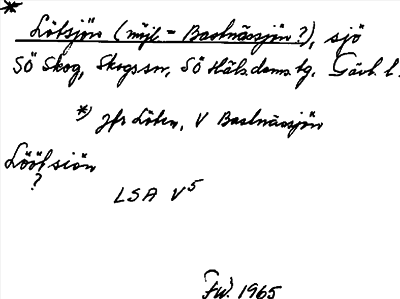 *
Lötsjön (möjl. = Bastnässjön?), sjö
SÖ Skog, Skogs sn, SÖ Häls. doms. tg. Gävl. l.
*) jfr Löten, V Bastnässjön
Lööt siön
?
LSA V5
FW. 1965